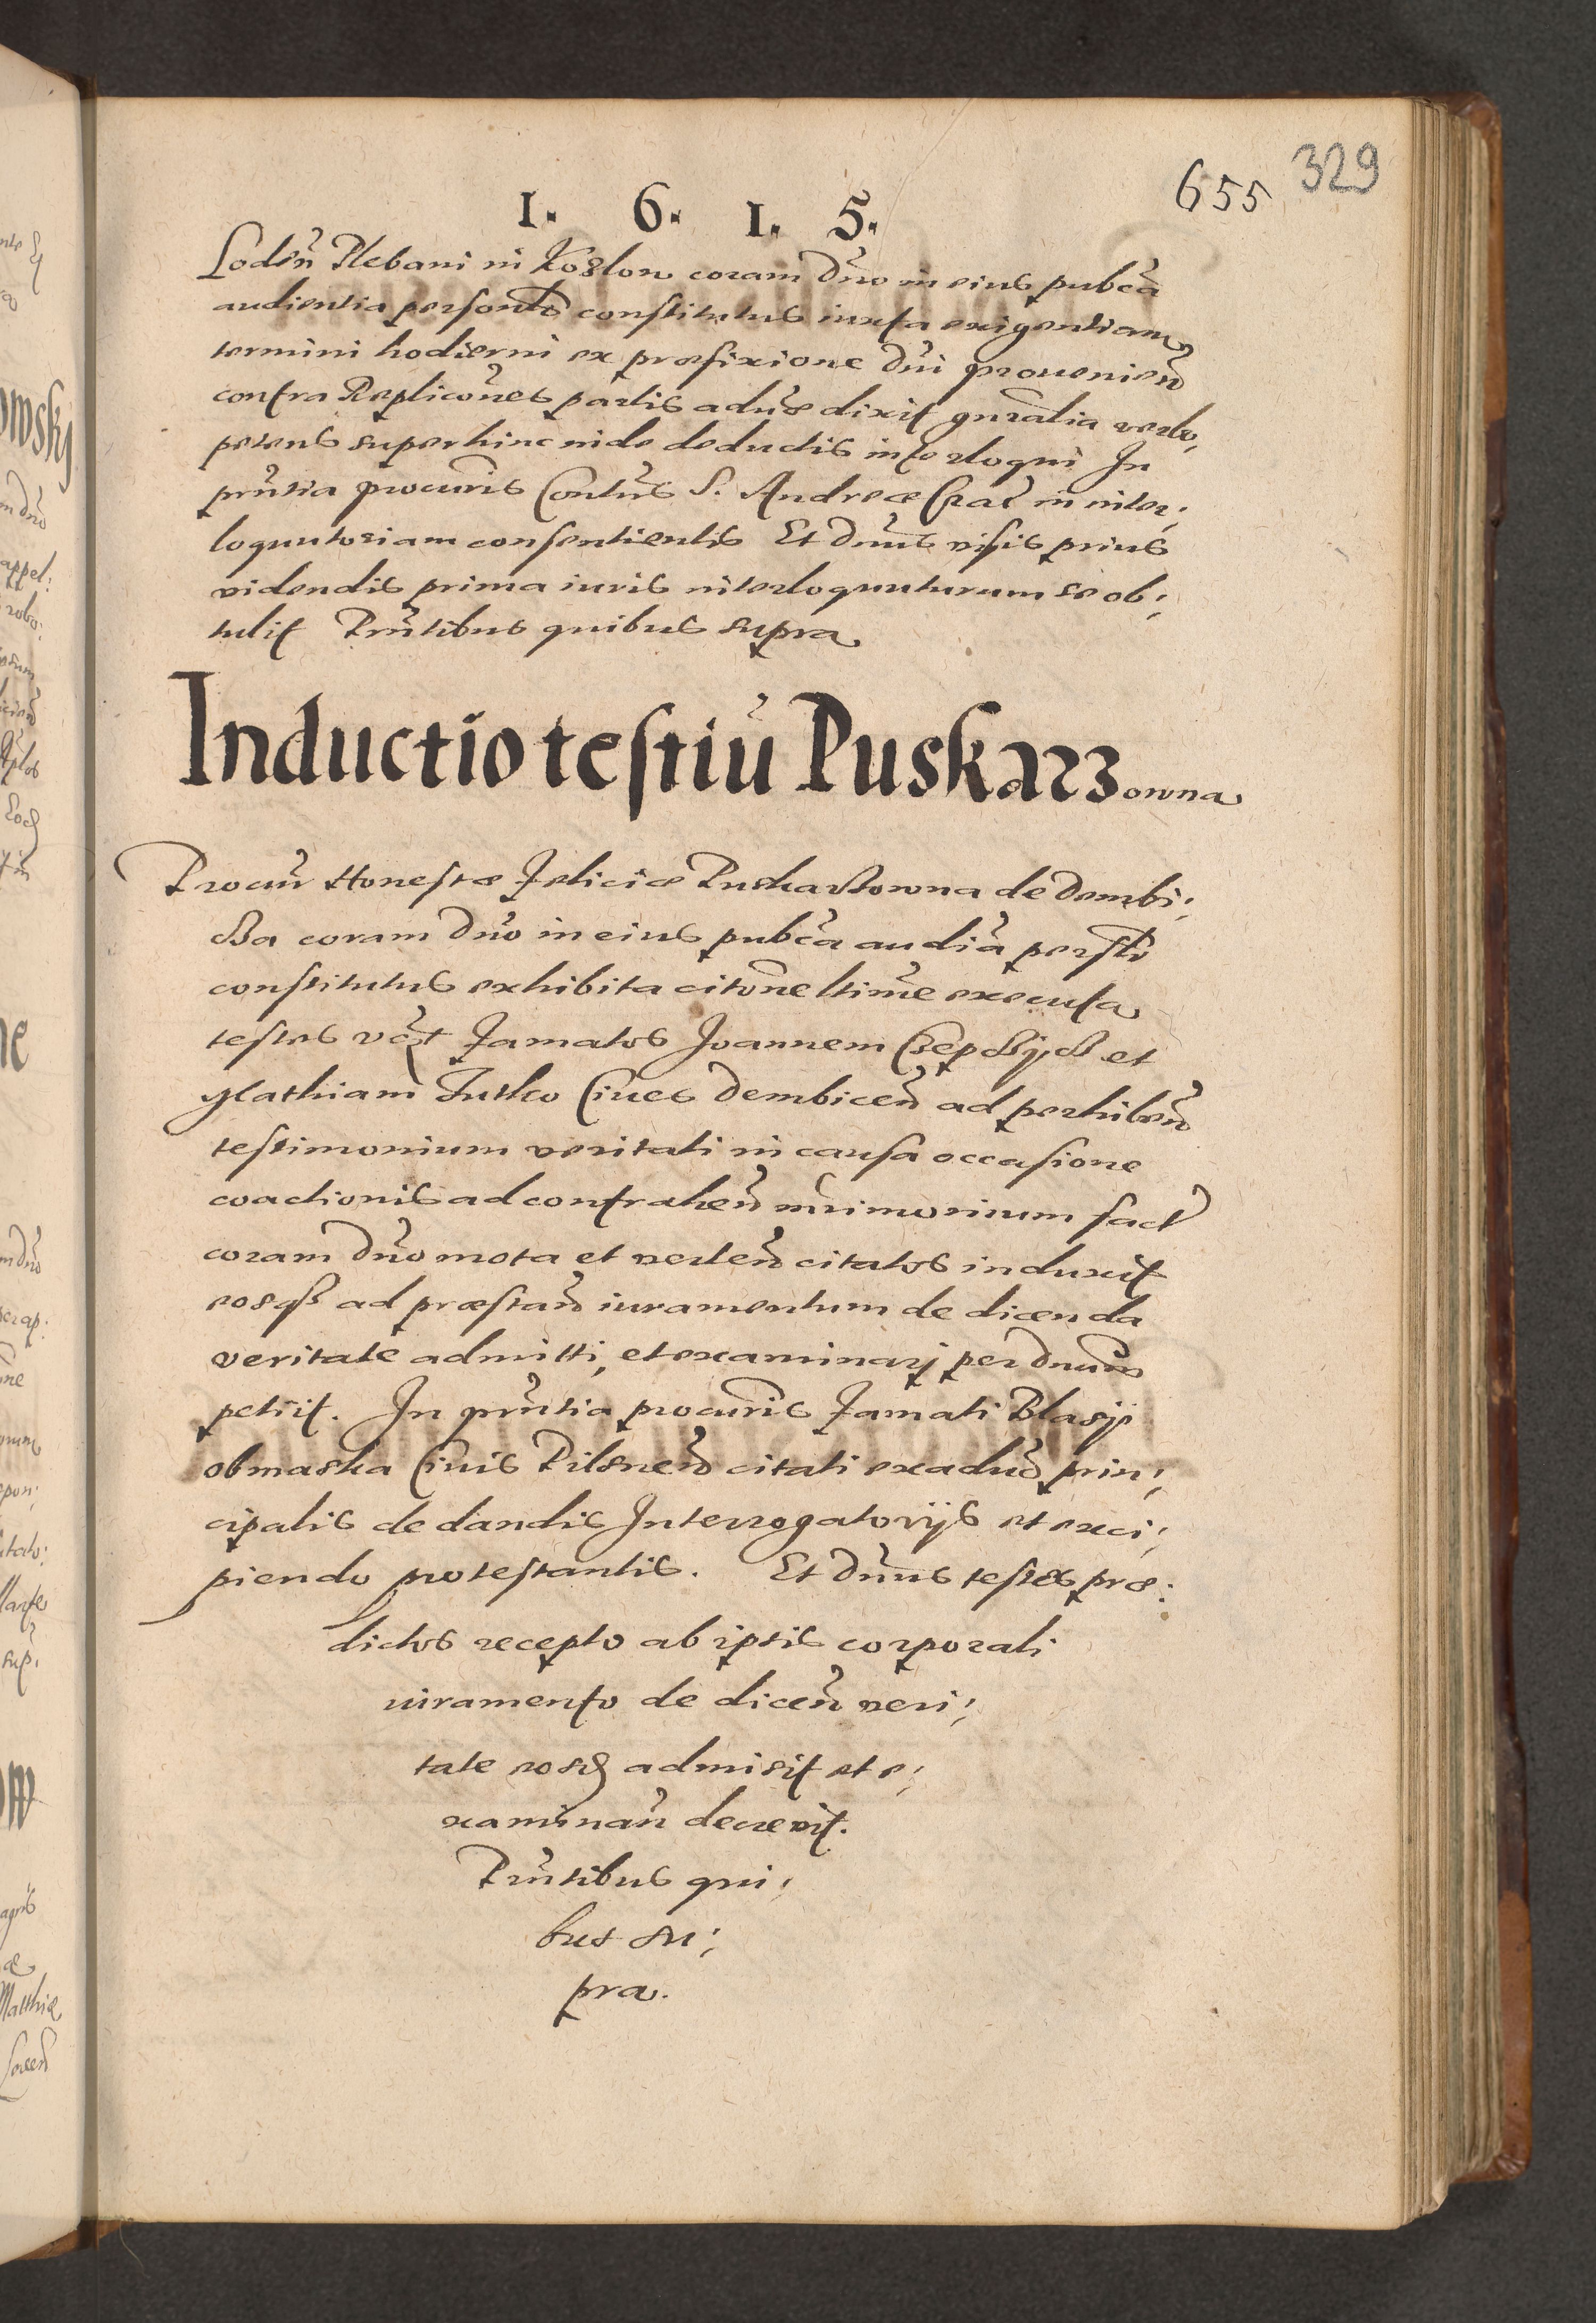 655 329
1. 6. 1. 5.
Loden̄ Plebani in Kozlow coram Dn̄o in eius pubc̄a
audientia personlr̄ constitutus iuxta exigentiam
termini hodierni ex præfixione Dn̄i prouenien̄
contra Replicōnes partis aduersæ dixit gnr̄alia verbo,
petens super hinc inde deductis interloqui In
prn̄tia procur̄is Contus S. Andreæ Crac̄ in inter;
loquutoriam consentientis Et Dnūs visis prius
videndis prima iuris interloquuturum se ob;
tulit Prn̄tibus quibus supra
Inductio testiū Puskarzowna
Procur̄ Honestæ Feliciæ Puskarzowna de Dembi;
cza coram Dn̄o in eius pubc̄a audiā perslr̄
constitutus exhibita citōne ltimē executa
testes vc̄t Famatos Joannem et
Mathiam Jutko Ciues Dembicen̄ ad perhiben̄
testimonium veritati in causa occasione
coactionis ad contrahen̄ mr̄imonium fact̄
coram Dn̄o mota et verten̄ citatos induxit
eosqз ad præstan̄ iuramentum de dicenda
veritate admitti, et examinarj per Dnūm
petiit. In prn̄tia procur̄is Famati Blasij
obmaska Ciuis Pilsnen̄ citati ex aduer̄ prin;
cipalis de dandis Interrogatorijs et exci;
piendo protestantis. Et Dnūs testes præ:
dictos recepto ab ipsis corporali
iuramento de dicen̄ veri;
tate eosqз admisit et e;
xaminan̄ decreuit.
Prn̄tibus qui;
bus su;
pra.